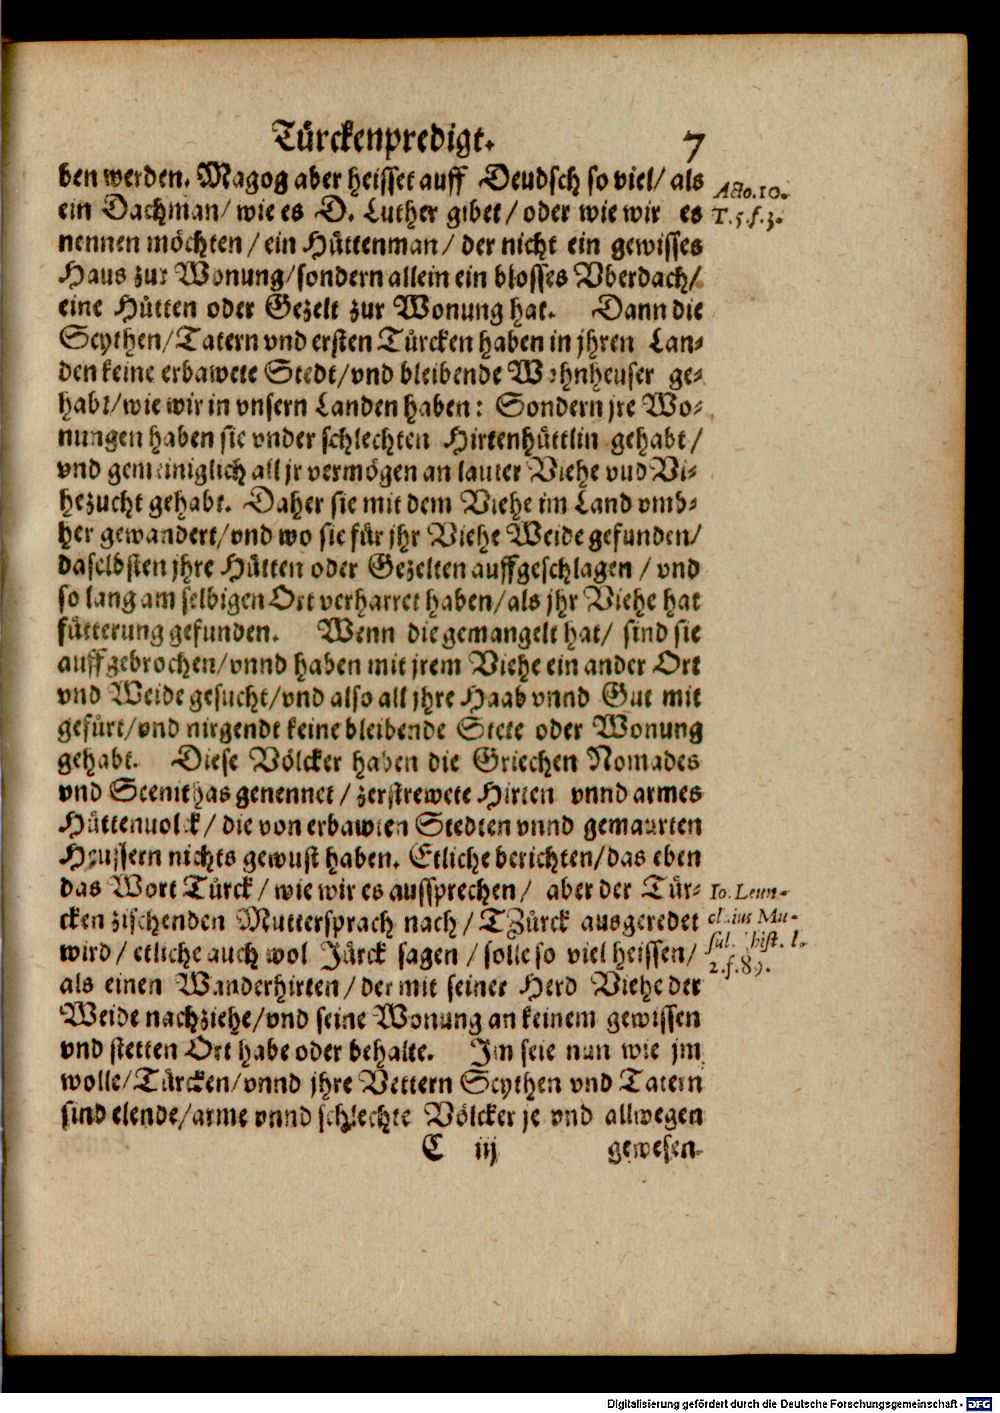 Türckenpredigt. 7
ben werden. Magog aber heisset auff Deudsch so viel/ als
Acto.10.
ein Dachman/ wie es D. Luther gibet/ oder wie wir es
T.5.f.3.
nennen möchten/ ein Hüttenman/ der nicht ein gewisses
Haus zur Wonung/sondern allein ein blosses Vberdach/
eine Hütten oder Gezelt zur Wonung hat. Dann die
Scythen/Tatern vnd ersten Türcken haben in jhren Lan-
den keine erbawete Stedt/vnd bleibende Wohnheuser ge-
habt/wie wir in vnsern Landen haben: Sondern jre Wo-
nungen haben sie vnder schlechten Hirtenhüttlin gehabt/
vnd gemeiniglich all jr vermögen an lauter Viehe vud Vi-
hezucht gehabt. Daher sie mit dem Viehe im Land vmb-
her gewandert/vnd wo sie für jhr Viehe Weide gefunden/
daselbsten jhre Hütten oder Gezelten auffgeschlagen / vnd
so lang am selbigen Ort verharret haben/als jhr Viehe hat
fütterung gefunden. Wenn die gemangelt hat/ sind sie
auffgebrochen/vnnd haben mit jrem Viehe ein ander Ort
vnd Weide gesucht/vnd also all jhre Haab vnnd Gut mit
gefürt/vnd nirgendt keine bleibende Stete oder Wonung
gehabt. Diese Völcker haben die Griechen Nomades
vnd Scenithas genennet / zerstrewete Hirten vnnd armes
Hüttenuolck/ die von erbawten Stedten vnnd gemaurten
Heussern nichts gewust haben. Etliche berichten/das eben
das Wort Türck / wie wir es aussprechen / aber der Tür-
Io. Leun-
cken zischenden Muttersprach nach/ TZürck ausgeredet
clauius Mu-
wird/ etliche auch wol Jürck sagen / solle so viel heissen/
sul. hist. l.
2.f.89.
als einen Wanderhirten/ der mit seiner Herd Viehe der
Weide nachziehe/vnd seine Wonung an keinem gewissen
vnd stetten Ort habe oder behalte. Jm seie nun wie jm
wolle/Türcken/vnnd jhre Vettern Scythen vnd Tatern
sind elende/arme vnnd schlechte Völcker je vnd allwegen
C iij gewesen.
Digitalisierung gefördert durch die Deutsche Forschungsgemeinschaft - DFG